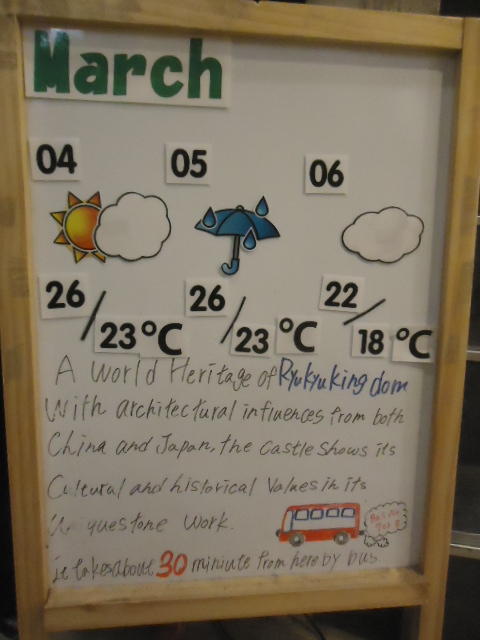 March
04 05 06
26/23°C 26/23°C 22/18°C
A World Heritage of Ryukyu king dom
With architectural influences from both
China and Japan, the Castle shows its
Cultural and historical Values in its
Uniquestone work.
it takes about 30 miniute from here by bus.